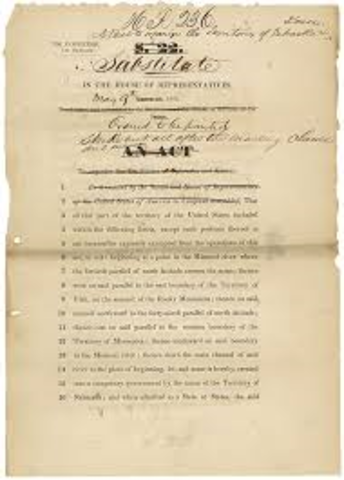 H.R. 236
A Bill to organize the territory of Nebraska
S. 22.
Substitute
IN THE HOUSE OF REPRESENTATIVES
May 9th
Ordered to be printed
Strike out all after the enacting clause
AN ACT
To organize the
1 Be it enacted by the Senate and House of Representatives
2 of the United States of America in Congress assembled, That
3 all that part of the territory of the United States included
4 within the following limits, except such portions thereof as
5 are hereinafter expressly exempted from the operations of this
6 act, to wit: beginning at a point in the Missouri river where
7 the fortieth parallel of north latitude crosses the same; thence
8 west on said parallel to the east boundary of the Territory of
9 Utah, on the summit of the Rocky Mountains; thence on said
10 summit northward to the forty-ninth parallel of north latitude;
11 thence east on said parallel to the western boundary of the
12 Territory of Minnesota; thence southward on said boundary
13 to the Missouri river; thence down the main channel of said
14 river to the place of beginning, be, and the same is hereby, created
15 into a temporary government by the name of the Territory of
16 Nebraska; and when admitted as a State or States, the said